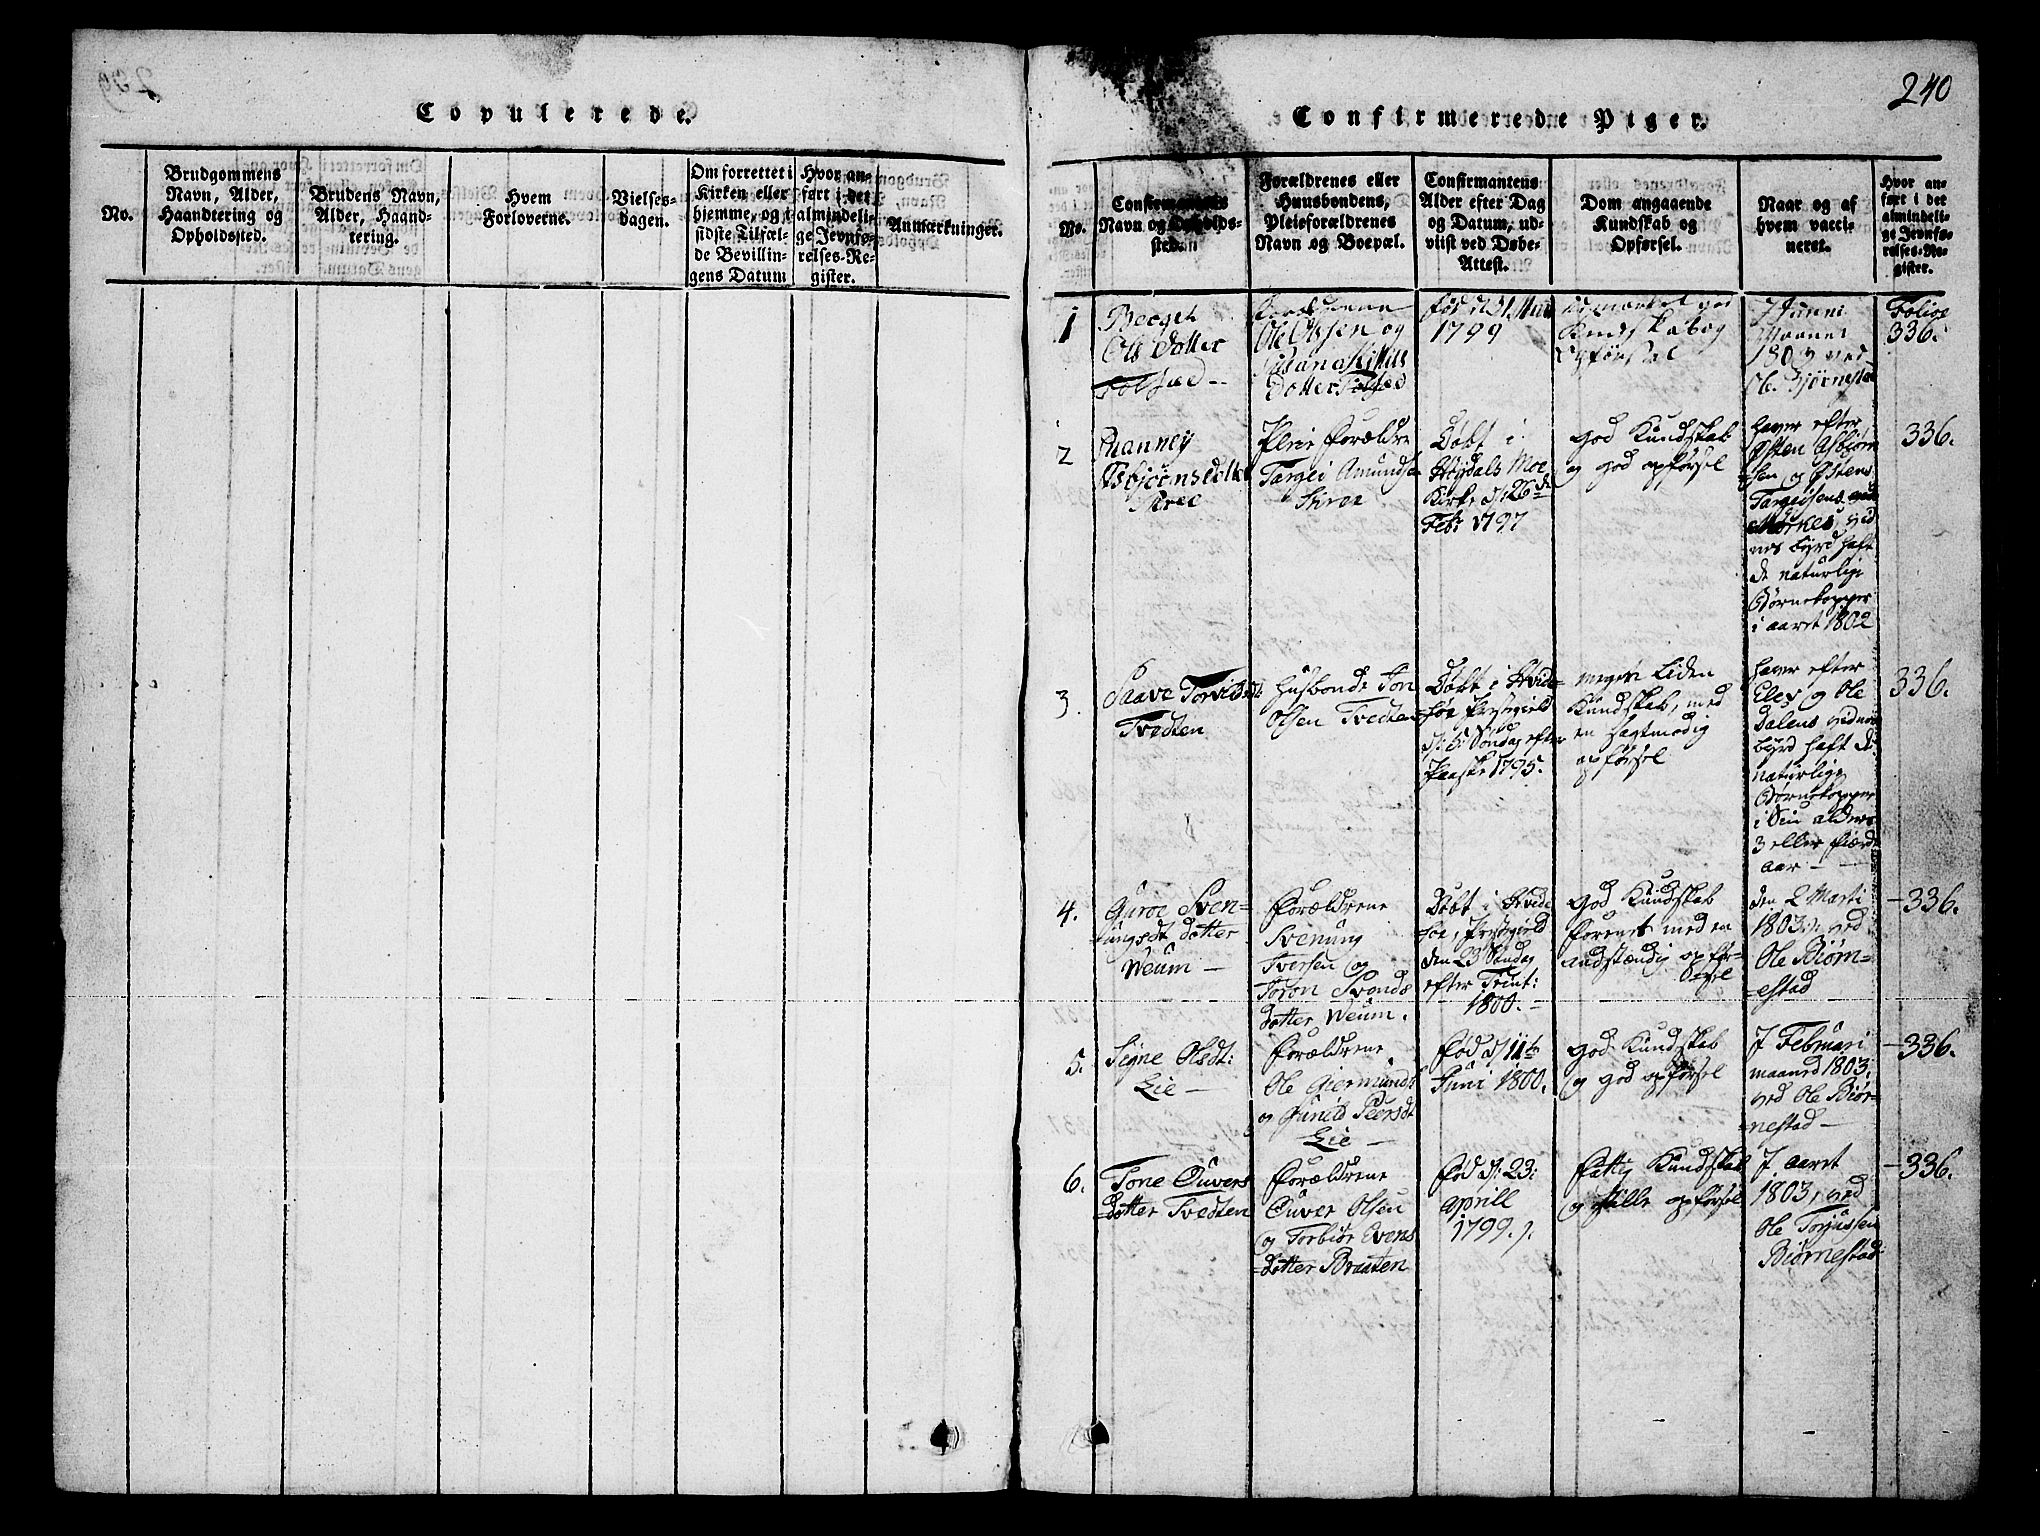 Copulerede.
No.
Brudgommens
Navn, Alder,
Haandtering og
Opholdssted.
Brudens Navn,
Alder, Haand-
tering.
Hvem
Forloverne.
Vielses-
dagen.
Om forrettet i
Kirken eller
hjemme, og i
sidste Tilfæl-
de Bevillin-
gens Datum
Hvor an-
ført i det
almindeli-
ge Jevnfø-
relses-Re-
gister.
Anmærkninger.
240
Confirmerede Piger.
No.
Confirmantens
Navn og Opholds-
sted.
Forældrenes eller
Huusbondens,
Pleieforældrenes
Navn og Boepæl.
Confirmantens
Alder efter Dag
og Datum, ud-
viist ved Døbe-
Attest.
Dom angaaende
Kundskab og
Opførsel.
Naar og af
hvem vacci-
neret.
Hvor an-
ført i det
almindeli-
ge Jevnfø-
relses-Re-
gister.
1
Berget
Ols Dotter
Forældrene
Ole Olsen og
Dotter
født d 31
1799
god
Kundskab og
opførsel
J Junni
Maanet
ved
Ole Bjørnestad
Folioe
336.
2
Ranney
Asbjørnsdotter
Pleie Forældre
Targei Amundsen
Døbt i
Høydals Moe
Kirke d: 26 de
Feb: 1797
god Kundskab
og god opførsel
haver efter
Østen Asbjørn
sen og Østens
Targeisens
ved
nes byrd haft
de naturlige
Børnekopper
i aaret 1802
336.
3.
Saave
Tvedten
Husbonde Jon
Olsen Tvedten
Døbt i Hvide-
søe Præstegield
d: 5 Søndag efter
Paaske 1795.
megen Liden
Kundskab, med
en sagtmodig
opførsel
haver efter
og Ole
Dalens vidnes
byrd haft de
naturlige
Børnekopper
i Sin alders
3 eller fierde
aar -
336.
4.
Guroe Sven-
ungsdt dotter
Weum -
Forældrene
Svenung
Iversen og
Toron Svends
dotter Weum.
Døbt i Hvide
søe, Præstegield
den 23 Søndag
efter Trint:
1800. -
god Kundskab
forenet med en
anstændig opfør-
sel
den 2 Marti
1803: ved
Ole Biørn-
estad
- 336.
5.
Signe Olsdt:
Lie -
Forældrene
Ole Giermunds
og Gunild Peersdt
Lie -
Fød d 11te
Juni 1800.
god Kundskab
og god opførsel
J Februari
maaned 1803:
ved Ole Biør-
nestad -
- 336.
6.
Tone Ouvers
dotter Tvedten
Forældrene
Ouver Olsen
og Torbiør Evens
dotter Braaten
Fød d: 23:
Aprill
1799.
Fattig Kundskab
og stille opførsel
J aaret
1803, ved
Ole Torjussen
Biørnestad
- 336.